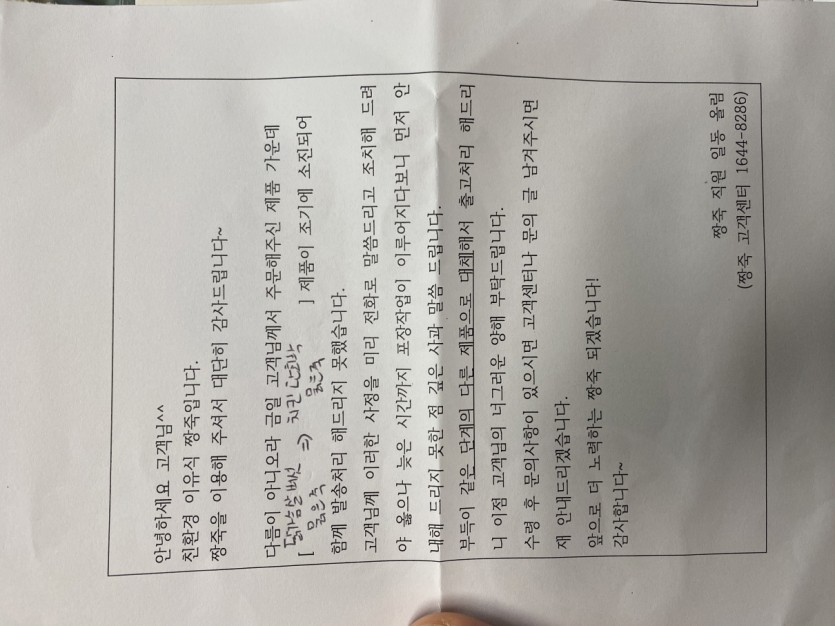 안녕하세요 고객님^^
친환경 이유식 짱죽입니다.
짱죽을 이용해 주셔서 대단히 감사드립니다~
다름이 아니오라 금일 고객님께서 주문해주신 제품 가운데
닭가슴살버섯 => 치킨단호박
[ 묽은죽 묽은죽 ] 제품이 조기에 소진되어
함께 발송처리 해드리지 못했습니다.
고객님께 이러한 사정을 미리 전화로 말씀드리고 조치해 드려
야 옳으나 늦은 시간까지 포장작업이 이루어지다보니 먼저 안
내해 드리지 못한 점 깊은 사과 말씀 드립니다.
부득이 같은 단계의 다른 제품으로 대체해서 출고처리 해드리
니 이점 고객님의 너그러운 양해 부탁드립니다.
수령 후 문의사항이 있으시면 고객센터나 문의 글 남겨주시면
재 안내드리겠습니다.
앞으로 더 노력하는 짱죽 되겠습니다!
감사합니다~
짱죽 직원 일동 올림
(짱죽 고객센터 1644-8286)